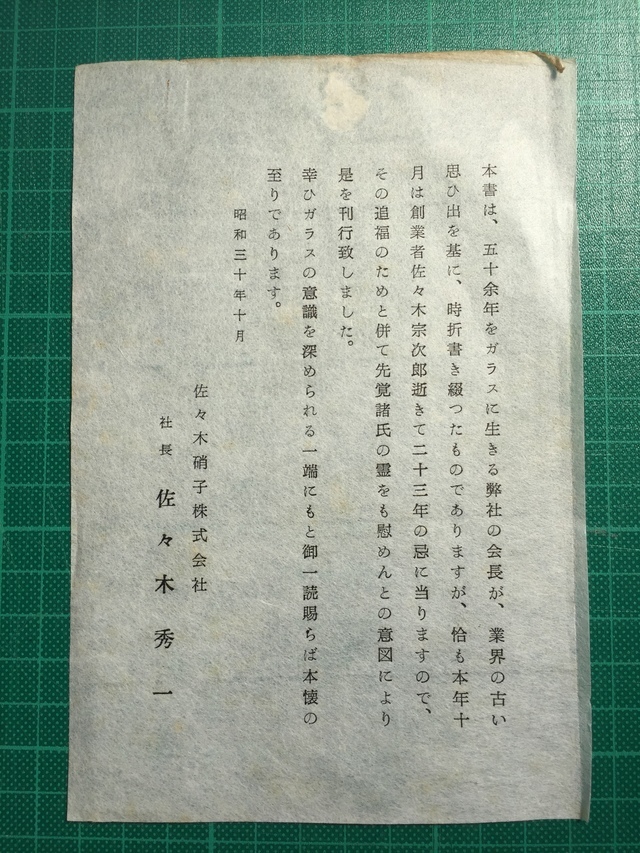 本書は、五十余年をガラスに生きる弊社の会長が、業界の古い
思ひ出を基に、時折書き綴つたものでありますが、恰も本年十
月は創業者佐々木宗次郎逝きて二十三年の忌に当りますので、
その追福のためと併て先覚諸氏の霊をも慰めんとの意図により
是を刊行致しました。
幸ひガラスの意識を深められる一端にもと御一読賜らば本懐の
至りであります。
昭和三十年十月
佐々木硝子株式会社
社長 佐々木秀一